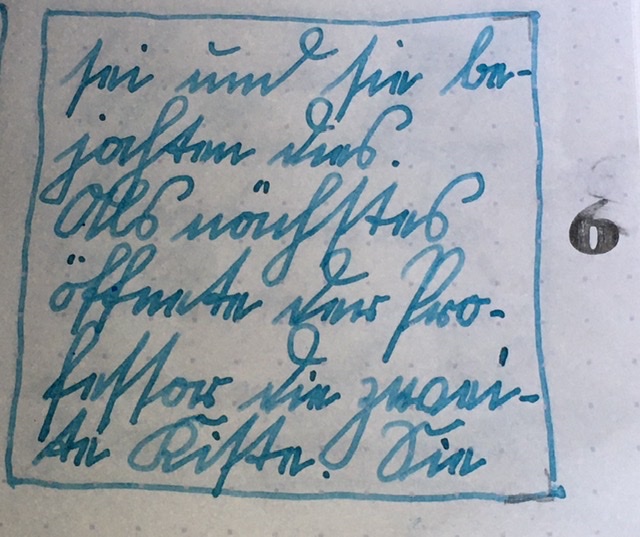 sei und sie be-
jahten dies.
Als nächstes
öffnete der Pro-
fessor die zwei-
te Kiste. Sie
6